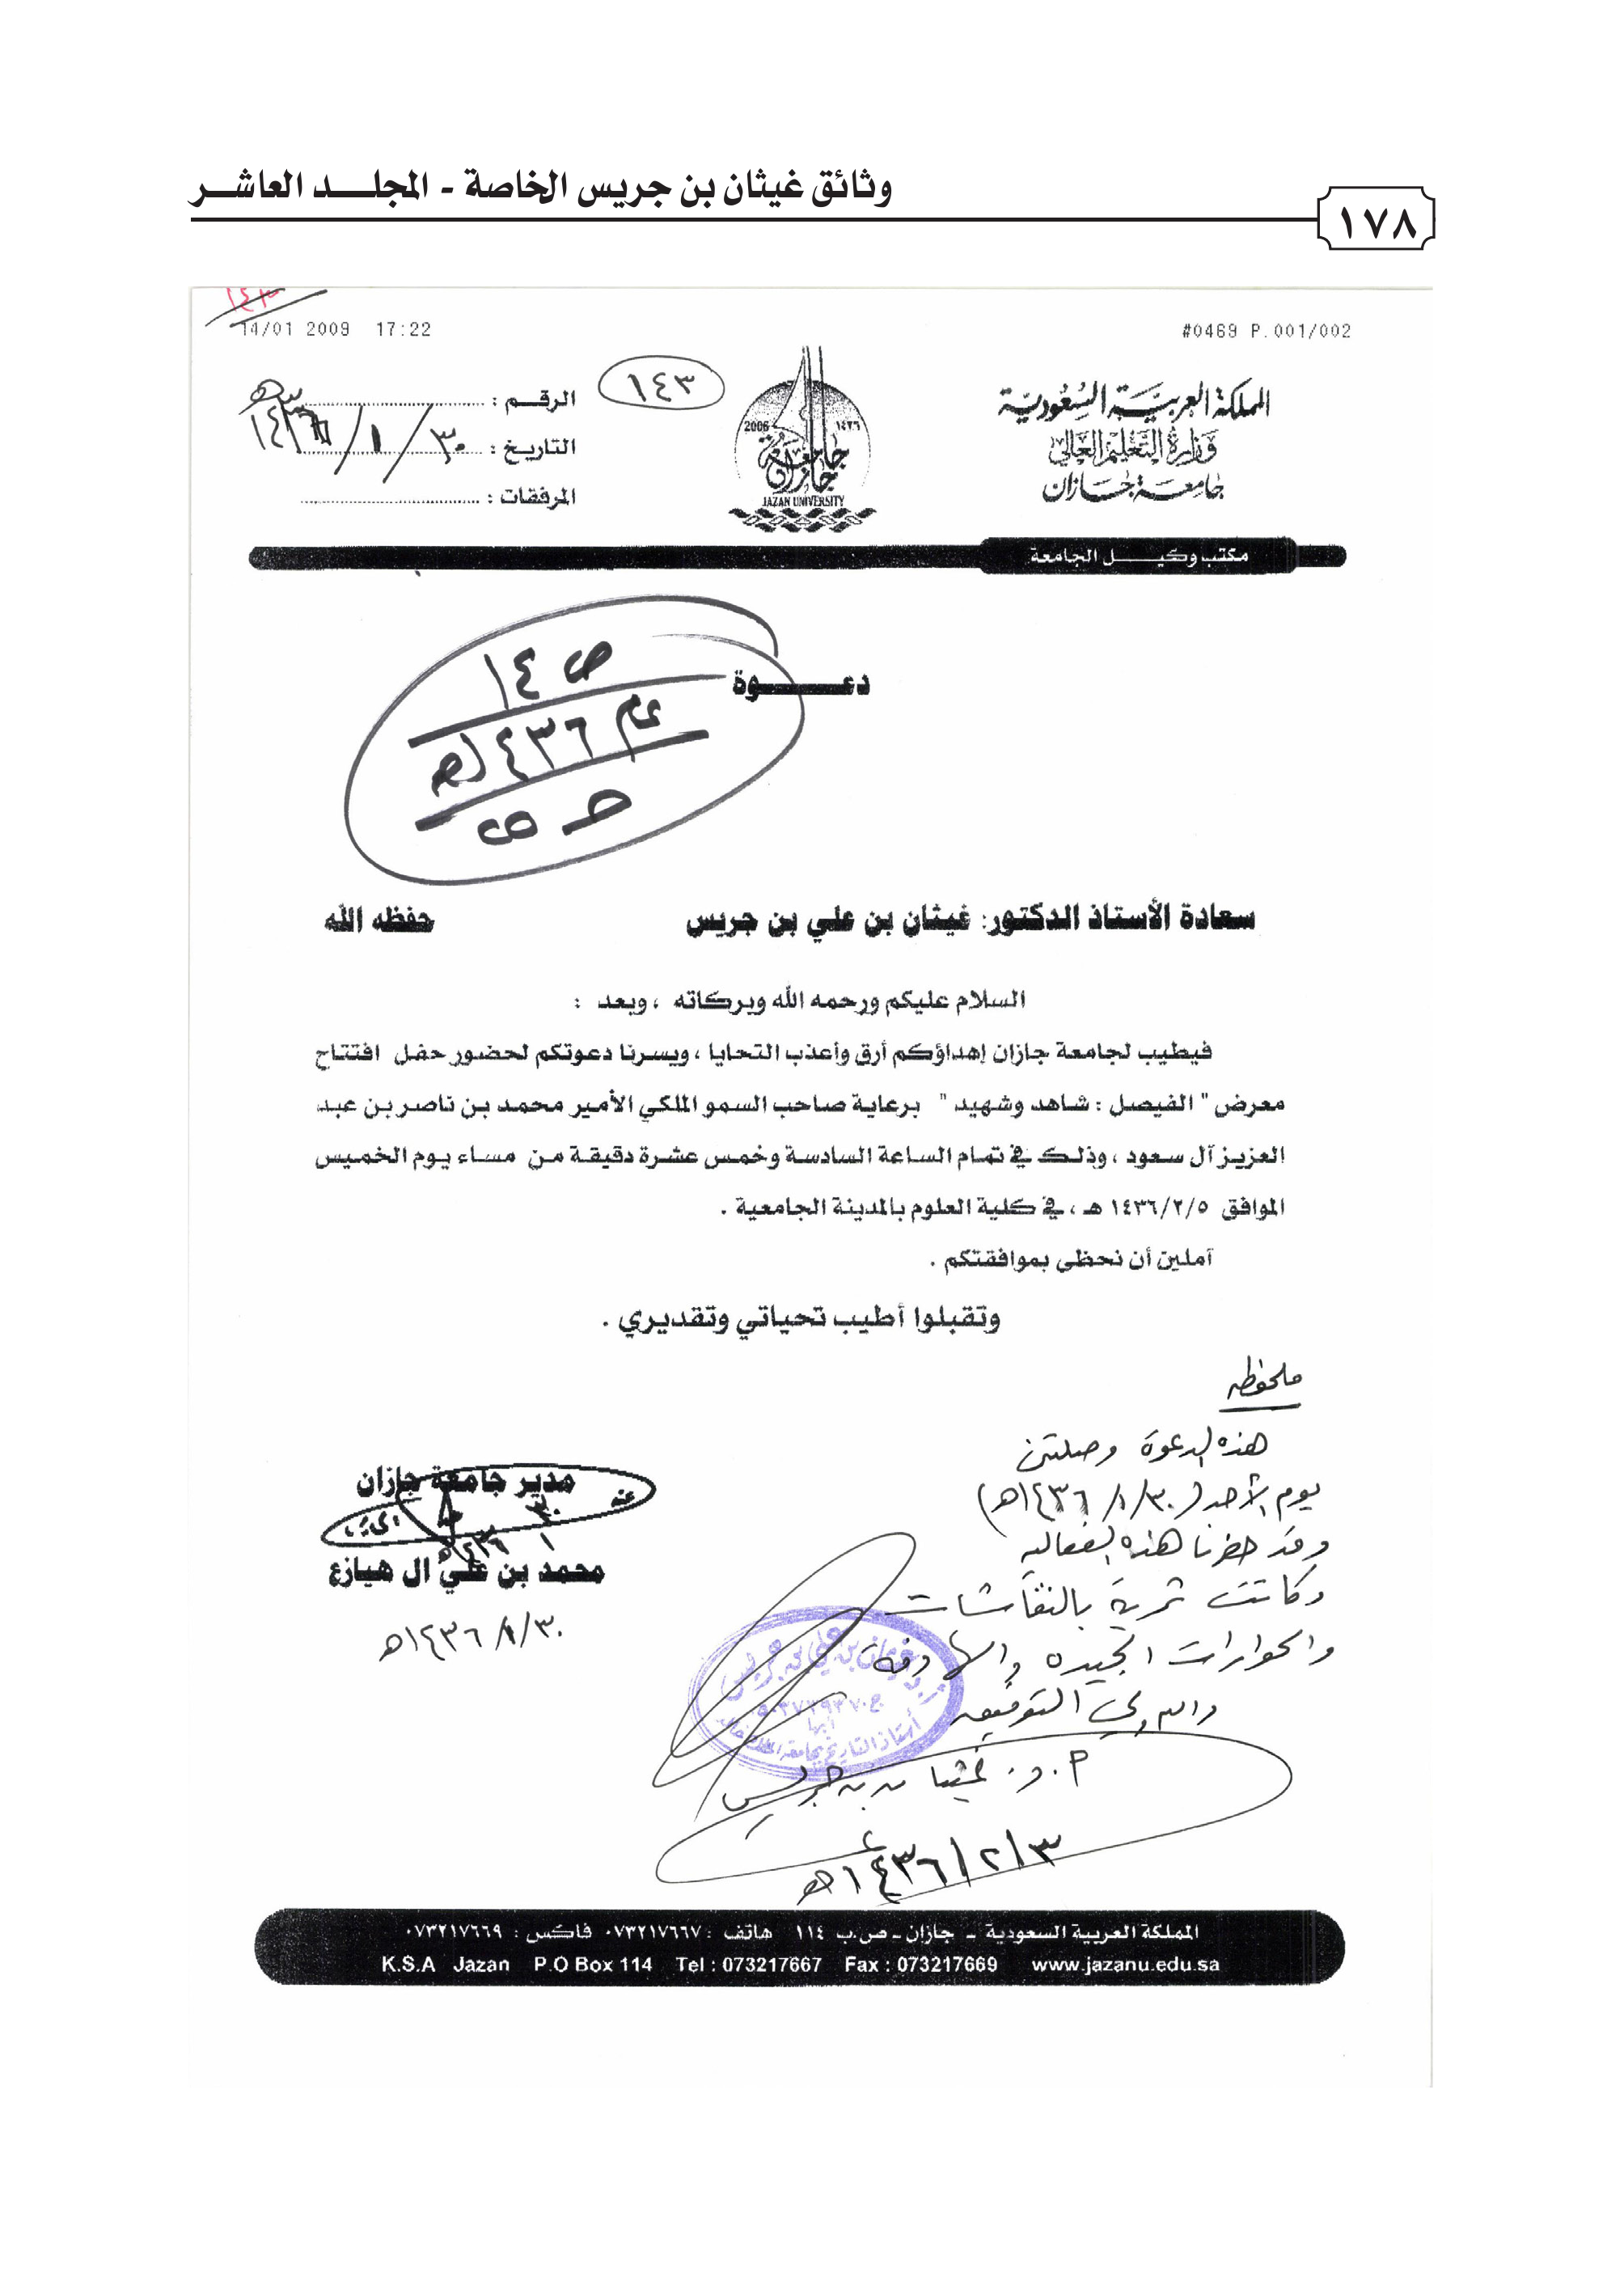 وثائق غيثان بن جريس الخاصة - المجلـــد العاشـــر
١٧٨
14/01 2009 17:22
#0469 P.001/002
المملكة العربية السعودية
وزارة التعليم العالي
جامعة جازان
2006 ١٤٢٦
جامعة جازان
JAZAN UNIVERSITY
١٤٣
الرقم :
التاريخ : ٣٠ / ١ / ١٤٣٦
المرفقات :
مكتب وكيـــل الجامعة
دعـــــوة
ص ١٤
عام ١٤٣٦هـ
سعادة الأستاذ الدكتور: غيثان بن علي بن جريس حفظه الله
السلام عليكم ورحمه الله وبركاته ، وبعد :
فيطيب لجامعة جازان إهداؤكم أرق وأعذب التحايا ، ويسرنا دعوتكم لحضور حفل افتتاح
معرض " الفيصل : شاهد وشهيد " برعاية صاحب السمو الملكي الأمير محمد بن ناصر بن عبد
العزيز آل سعود ، وذلك في تمام الساعة السادسة وخمس عشرة دقيقة من مساء يوم الخميس
الموافق ١٤٣٦/٢/٥ هـ ، في كلية العلوم بالمدينة الجامعية .
آملين أن نحظى بموافقتكم .
وتقبلوا أطيب تحياتي وتقديري .
مدير جامعة جازان
محمد بن علي آل هيازع
٣٠/١/١٤٣٦هـ
ملحوظه
هذه الدعوة وصلتني
يوم الأحد (٣٠/١/١٤٣٦هـ)
وقد حضرنا هذه الفعاليه
وكانت ثرية بالنقاشات
والحوارات الجيده والهادفة
والله ولي التوفيق
أ.د. غيثان بن جريس
٣/٢/١٤٣٦هـ
أ.د. غيثان بن علي بن جريس
أبها
أستاذ التاريخ بجامعة الملك خالد
المملكة العربية السعودية - جازان - ص.ب ١١٤ هاتف : ٠٧٣٢١٧٦٦٧ فاكس : ٠٧٣٢١٧٦٦٩
K.S.A Jazan P.O Box 114 Tel : 073217667 Fax : 073217669 www.jazanu.edu.sa